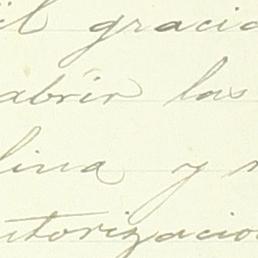 il gracia
abrir las
lina y n
utorizacion